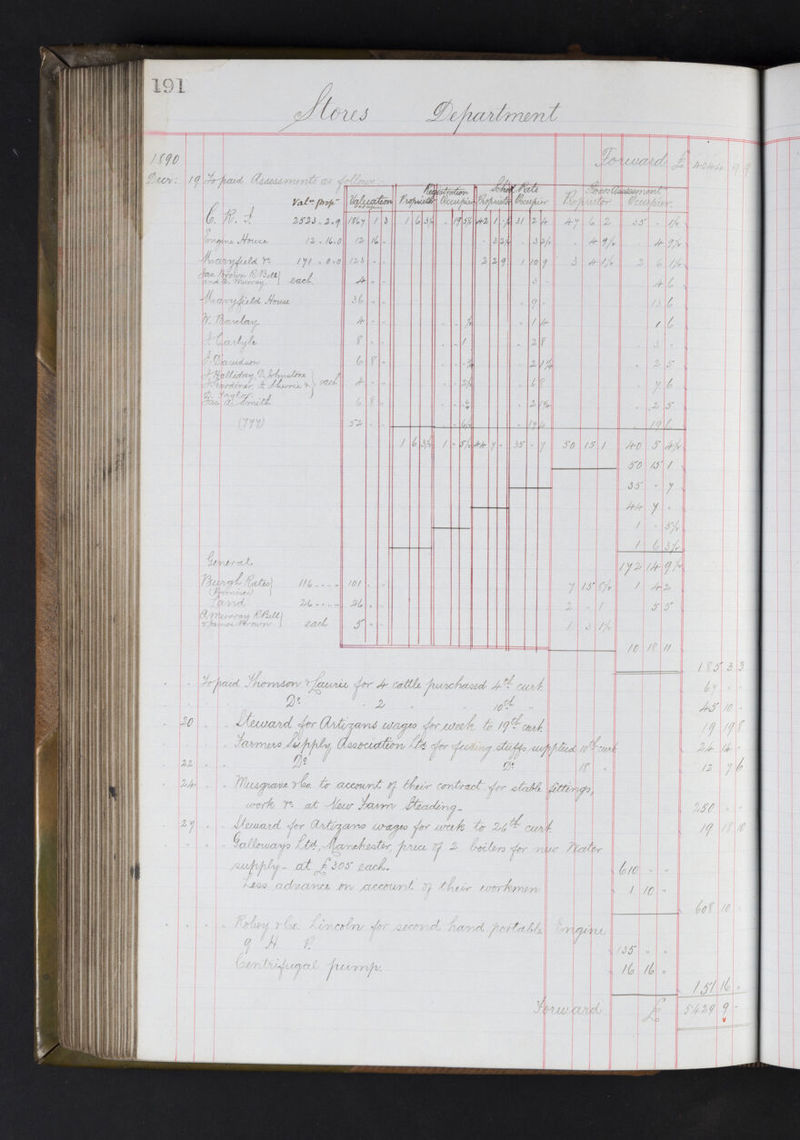 191
Stores Department
1890
Forward £ 4044 9 9
Decr: 19 To paid Assessments as follows:-
Registration School Rate Poor Assessment
Valn. prop. Valuation Proprietor Occupier Proprietor Occupier Proprietor Occupier
C. R. I. 2523.2.9 1867 1 3 1 6 3½ 42 1 31 2 4 47 6 2 35
Engine House 12.16.0 12 16 - 4 9½ 4 9½
Maryfield &c 171.0.0 123 - - 2 2 9 1 10 9 3 4 1½ 2 6 1½
Jas Brown R Bell
and A. Murray each 4 - - 4 6
Maryfield House 36 - - 9 - 13 6
W. Barclay 4 - - 1 4 1 6
J. Carlyle 8 - - 1 2 8 3 -
J. Davidson 6 8 - 2 5
J Halliday D. Johnstone
each 4 - - 7 6
Taylor
Jas A. Smith 6 8 - 2 5
(777) 52 - -
1 6 3½ 44 7 - 35 - 7 50 15 1 40 5 4½
50 15 1
35 - 7
44 7 -
1 - 5½
1 6 3½
General 172 14 9½
Burgh Rates 116 - - 101 - - 7 15 1 4 2
(Premises)
Land 26 - - 26 - - 2 - 1 5 5
A Murray R Bell
& James Brown each 5 - - 1 3 1½
10 18 11
185 3 3
To paid Thomson & Laurie for 4 cattle purchased 4th curt 67 - -
Do. 2 10th 45 10 -
20 Steward for Artizans wages for week to 19th curt 19 19 8
Farmers Supply Association Ltd for feeding stuffs supplied 10th curt 24 16 -
22 Do Do 18 12 7 6
24 Musgrave & Co. to account of their contract for stable fittings,
work &c. at New Farm Steading- 250 - -
27 Steward for Artizans wages for week to 26th curt 19 18 10
Galloways Ltd, Manchester price of 2 boilers for new Water
supply - at £305 each. 610 - -
Less advance on account of their workmen 1 10 -
608 10 -
Robey & Co. Lincoln for second hand portable Engine
9 H. P. 135 - -
Centrifugal pump. 16 16 -
151 16 -
Forward £ 5429 9 -